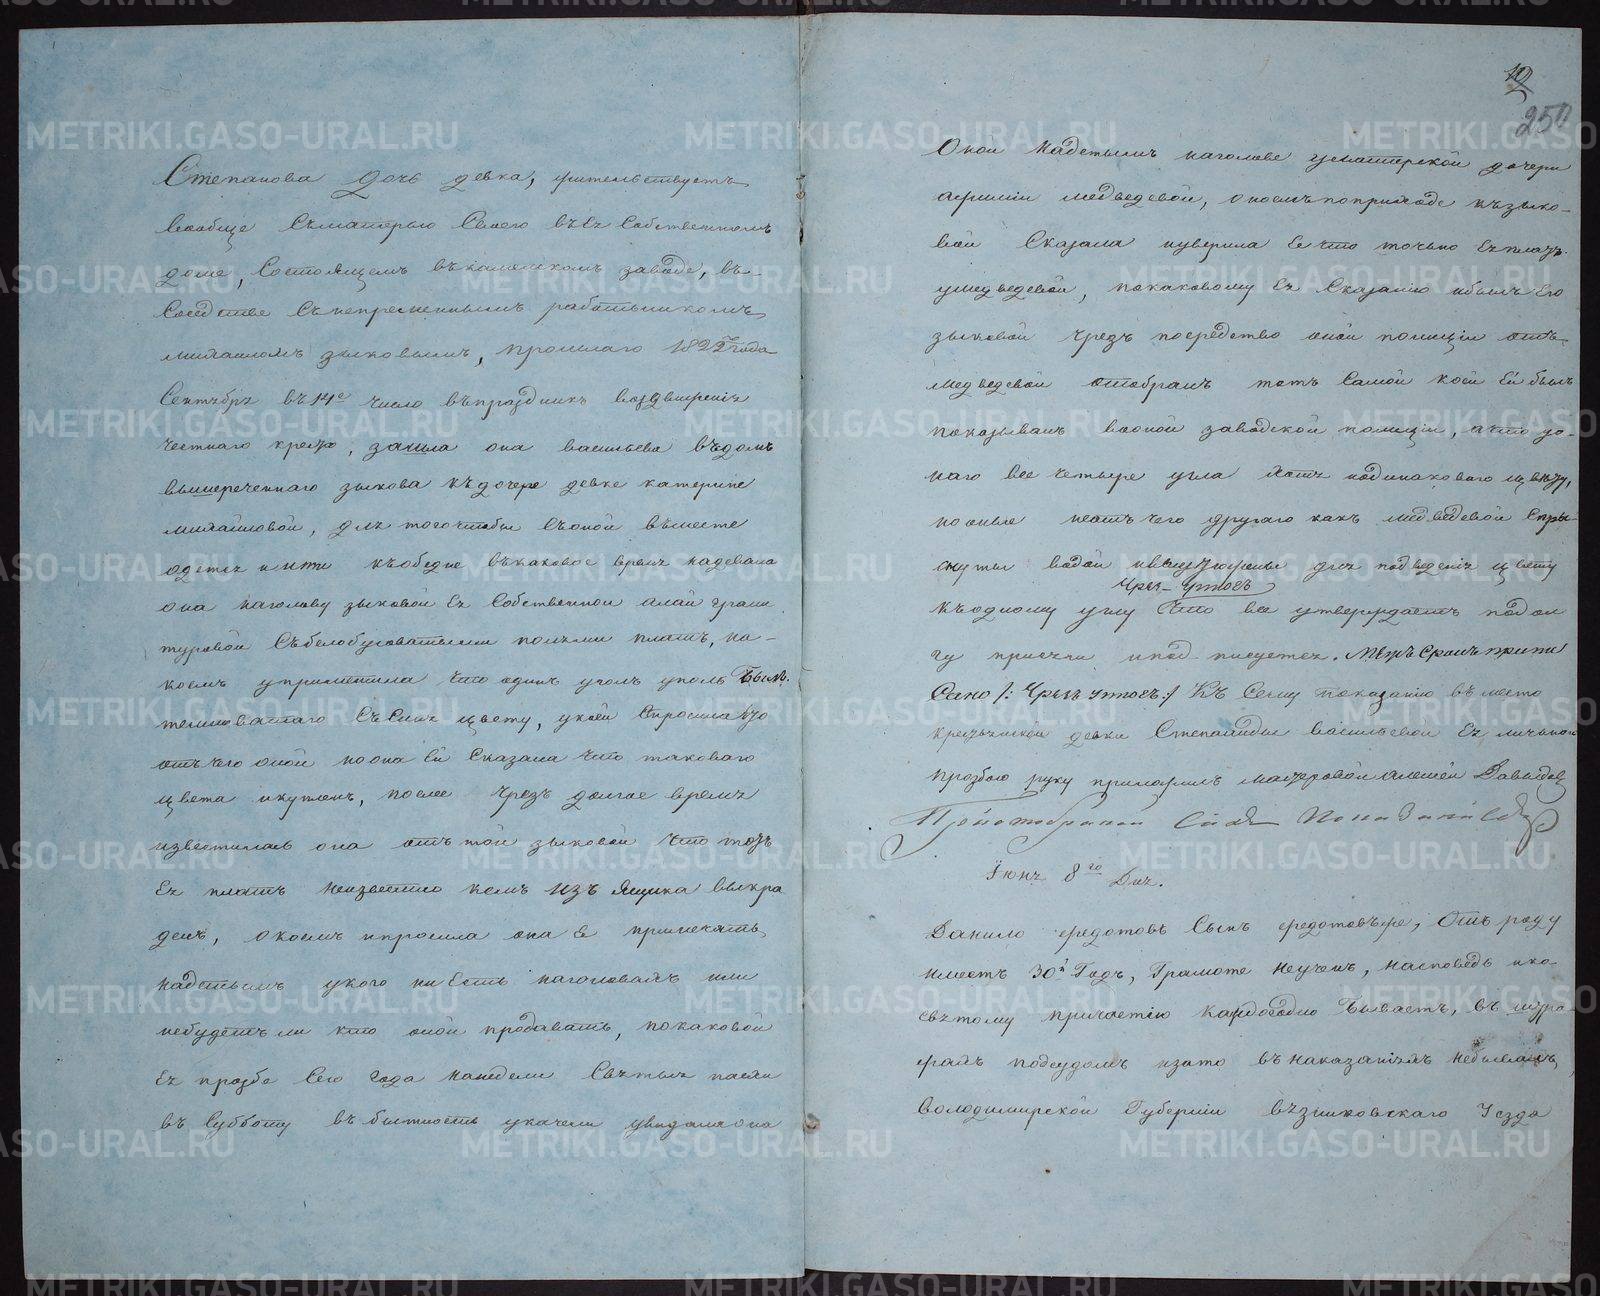 Степанова дочь девка, жительствуетъ
вообще съматерью своею въея собственномъ
доме, состоящемъ въ заводе, въ
соседстве съ непременнымъ работникомъ
михаиломъ зыковымъ, прошлаго 1822го года
Сентября въ 14е число въпраздникъ воздвижения
честнаго креста, зашла она васильева въдомъ
вышереченнаго зыкова къдочере девке катерине
михайловой, для тогочтобы съоной вместе
одется итти къобедне въкаковое время надевала
она наголову зыковой ея собственной алай грани
туровой събелобуфоватыми полями платъ, на
коемъ уприметила что одинъ уголъ былъ
темноватаго съсиня цвету, укоей спросила
отъчего оной но она ей сказала что таковаго
цвета икупленъ, после чрезъ долгае время
известилась она отъ той зыковой что тотъ
ея платъ неизвестно кемъ изъ ящика выкра
денъ, окоемъ ипросила она ее примечать
надетымъ укого ниесть наголовахъ или
небудетъ ли кто оной продавать, покаковой
ея прозбе сего года нанедели святыя пасхи
въ субботу въ бытность укачели увидала она
10
250
Оной надетымъ наголове дочери
афимьи медведевой, окоемъ поприходе къзыко-
вой сказала иуверила ее что точно ея платъ
умедведевой, покаковому ея сказанию ибылъ его
зыковой чрезъ посредство оной полиции отъ
медведевой отобранъ тотъ самой коей ей былъ
показыванъ воной заводской полиции, ачто уо-
наго все четыре угла хотя иодинаковаго цвету,
но оные неотъчего другаго какъ медведевой спры-
снуты водой для подведения цвету
чрез утюгъ
къодному углу что все утверждаетъ подъ
гу присяги иподписуется.
Сано /: Чрезъ утюгъ :/ Къ сему показанию вместо
крестьянской девки Степаниды васильевой ея личьной
прозбою руку приложилъ мастеровой алексей Давыдов
Июня 8го Дня.
Данило федотовъ сынъ федотовъже, отъ роду
имеетъ 30й годъ, грамоте неученъ, наисповедь ико-
святому причастию каждогодно бываетъ, въ штра-
фахъ подсудомъ изато въ наказанияхъ небывалъ,
володимирской Губернии вязниковскаго уезда